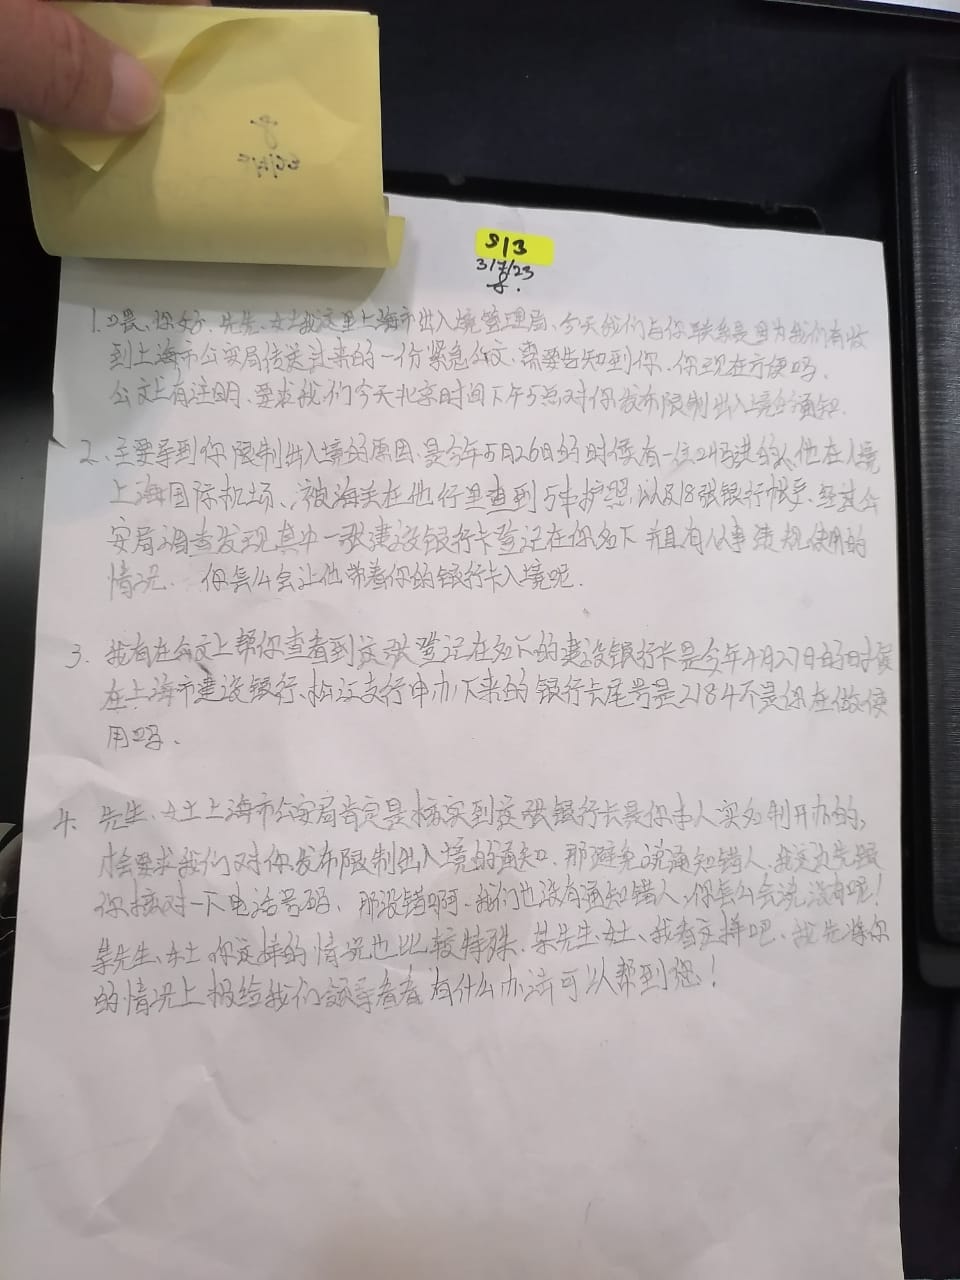 S13
3/7/23
1.喂、你好.先生、女士我这里上海市出入境管理局、今天我们与你联系是因为我们有收
到上海市公安局传送过来的一份紧急公文、需要告知到你、你现在方便吗、
公文上有注明、要求我们今天北京时间下午5点对你发布限制出入境的通知.
2、主要导到你限制出入境的原因、是今年5月26日的时候有一位 他在入境
上海国际机场、被海关在他行里查到5本护照、以及18张银行 、经过公
安局调查发现其中一张建设银行卡登记在你名下 并且有从事违规使用的
情况、 你怎么会让他带着你的银行卡入境呢.
3、我有在公文上帮你查看到这张登记在名下的建设银行卡是今年4月27日的时候
在上海市建设银行、松江支行申办下来的 银行卡尾号是2184不是你在做使
用吗、
4、先生、女士上海市公安局肯定是核实到这张银行卡是你本人实名制开办的,
才会要求我们对你发布限制出入境的通知、那避免说通知错人、我这边先跟
你核对一下电话号码、那没错啊、我们也没有通知错人、你怎么会说没有呢!
某先生、女士 你这样的情况也比较特殊、某先生女士、我看这样吧、我先将你
的情况上报给我们领导看看 有什么办法可以帮到您!